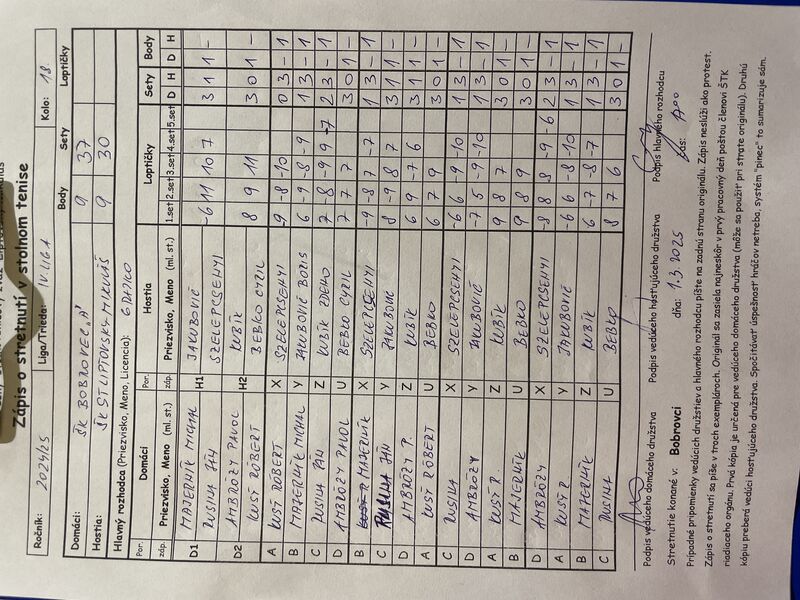 Zápis o stretnutí v stolnom tenise
Ročník: 2024/25 Liga/Trieda: IV LIGA Kolo: 18.
Body Sety Loptičky
Domáci: ŠK BOBROVEC „A" 9 37
Hostia: ŠK ŠT LIPTOVSKÝ MIKULÁŠ 9 30
Hlavný rozhodca (Priezvisko, Meno, Licencia):
Domáci Hostia Loptičky Sety Body
Por. záp. Priezvisko, Meno (ml. st.) Por. záp. Priezvisko, Meno (ml. st.) 1.set 2.set 3.set 4.set 5.set D H D H
D1 MAJERNÍK MICHAL H1 JAKUBOVIČ -6 11 10 7 3 1 1 -
RUSINA JÁN SZELEPCSENYI
D2 AMBRÓZY PAVOL H2 KUBÍK 8 9 11 3 0 1 -
KUSÝ RÓBERT BEBKO CYRIL
A KUSÝ RÓBERT X SZELEPCSENYI -9 -8 -10 0 3 - 1
B MAJERNÍK MICHAL Y JAKUBOVIČ BORIS 6 -9 -8 -9 1 3 - 1
C RUSINA JÁN Z KUBÍK ZDENO 7 8 -9 -9 -7 2 3 - 1
D AMBRÓZY PAVOL U BEBKO CYRIL 7 7 7 3 0 1 -
B MAJERNÍK X SZELEPCSENYI -9 -8 7 -7 1 3 - 1
C RUSINA JÁN Y JAKUBOVIČ 8 -9 8 7 3 1 1 -
D AMBRÓZY P. Z KUBÍK 6 9 -7 6 3 1 1 -
A KUSÝ RÓBERT U BEBKO 6 7 9 3 0 1 -
C RUSINA X SZELEPCSENYI -6 6 -9 -10 1 3 - 1
D AMBRÓZY Y JAKUBOVIČ -7 5 -9 -10 1 3 - 1
A KUSÝ R Z KUBÍK 9 8 7 3 0 1 -
B MAJERNÍK U BEBKO 9 8 9 3 0 1 -
D AMBRÓZY X SZELEPCSENYI -8 8 8 -9 -6 2 3 - 1
A KUSÝ R Y JAKUBOVIČ -6 6 -8 -10 1 3 - 1
B MAJERNÍK Z KUBÍK 6 -7 -8 -7 1 3 - 1
C RUSINA U BEBKO 8 7 6 3 0 1 -
Podpis vedúceho domáceho družstva Podpis vedúceho hosťujúceho družstva Podpis hlavného rozhodcu
Stretnutie konané v: Bobrovci dňa: 1.3.2025 čas:
Prípadné pripomienky vedúcich družstiev a hlavného rozhodcu píšte na zadnú stranu originálu. Zápis neslúži ako protest.
Zápis o stretnutí sa píše v troch exemplároch. Originál sa zasiela najneskôr v prvý pracovný deň poštou členovi ŠTK
riadiaceho orgánu. Prvá kópia je určená pre vedúceho domáceho družstva (môže sa použiť pri strate originálu). Druhú
kópiu preberá vedúci hosťujúceho družstva. Spočitávať úspešnosť hráčov netreba, systém "pinec" to sumarizuje sám.